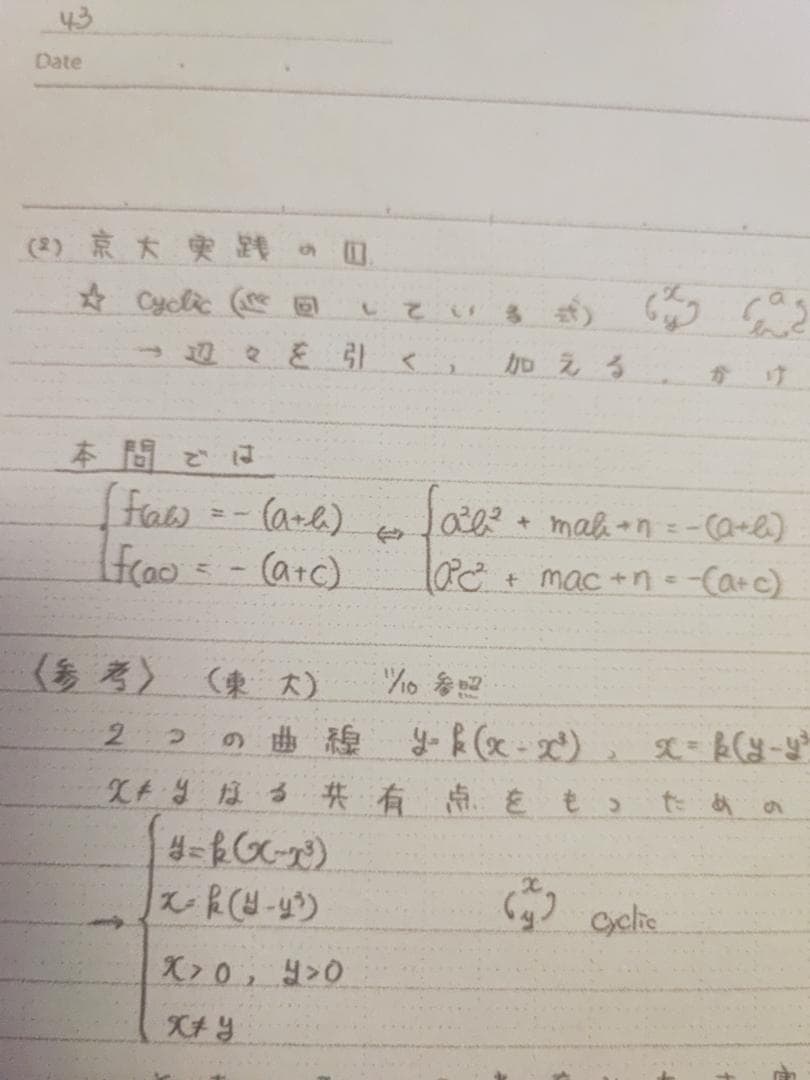 43
Date
(2) 京大実践の
☆ Cyclic (巡回している式) (x y) (a b c)
→ 辺々を引く, 加える, かけ
本問では
{ f(ab) = -(a+b) ⇔ { a²b² + mab+n = -(a+b)
f(ac) = -(a+c) a²c² + mac+n = -(a+c)
〈参考〉 (東大) 11/10 参照
2つの曲線 y=k(x-x³), x=k(y-y³
x≠yなる共有点をもつための
{ y=k(x-x³)
x=k(y-y³) (x y) cyclic
→
x>0, y>0
x≠y